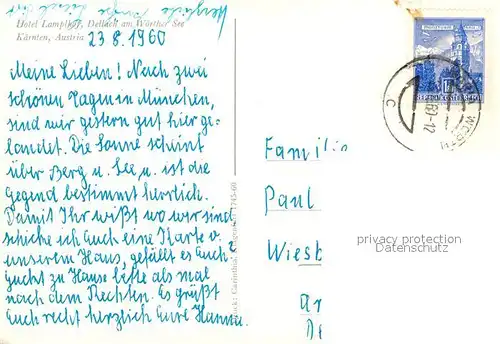 Herzliche Grüße
Hotel Lamplhof, Dellach am Wörther See
Kärnten, Austria
23.8.1960
Meine Lieben! Nach zwei
schönen Tagen in München,
sind wir gestern gut hier ge-
landet. Die Sonne scheint
über Berg u. See u. ist die
Gegend bestimmt herrlich.
Damit Ihr wißt wo wir sind
schicke ich Euch eine Karte v.
unserem Haus, gefällt es Euch?
Guckt zu Hause bitte als mal
nach dem Rechten. Es grüßt
Euch recht herzlich Eure Hanna.
Carinthia, 1745-60
REPUBLIK ÖSTERREICH
60-12
C
Familie
Paul
Wiesb
privacy protection
Datenschutz